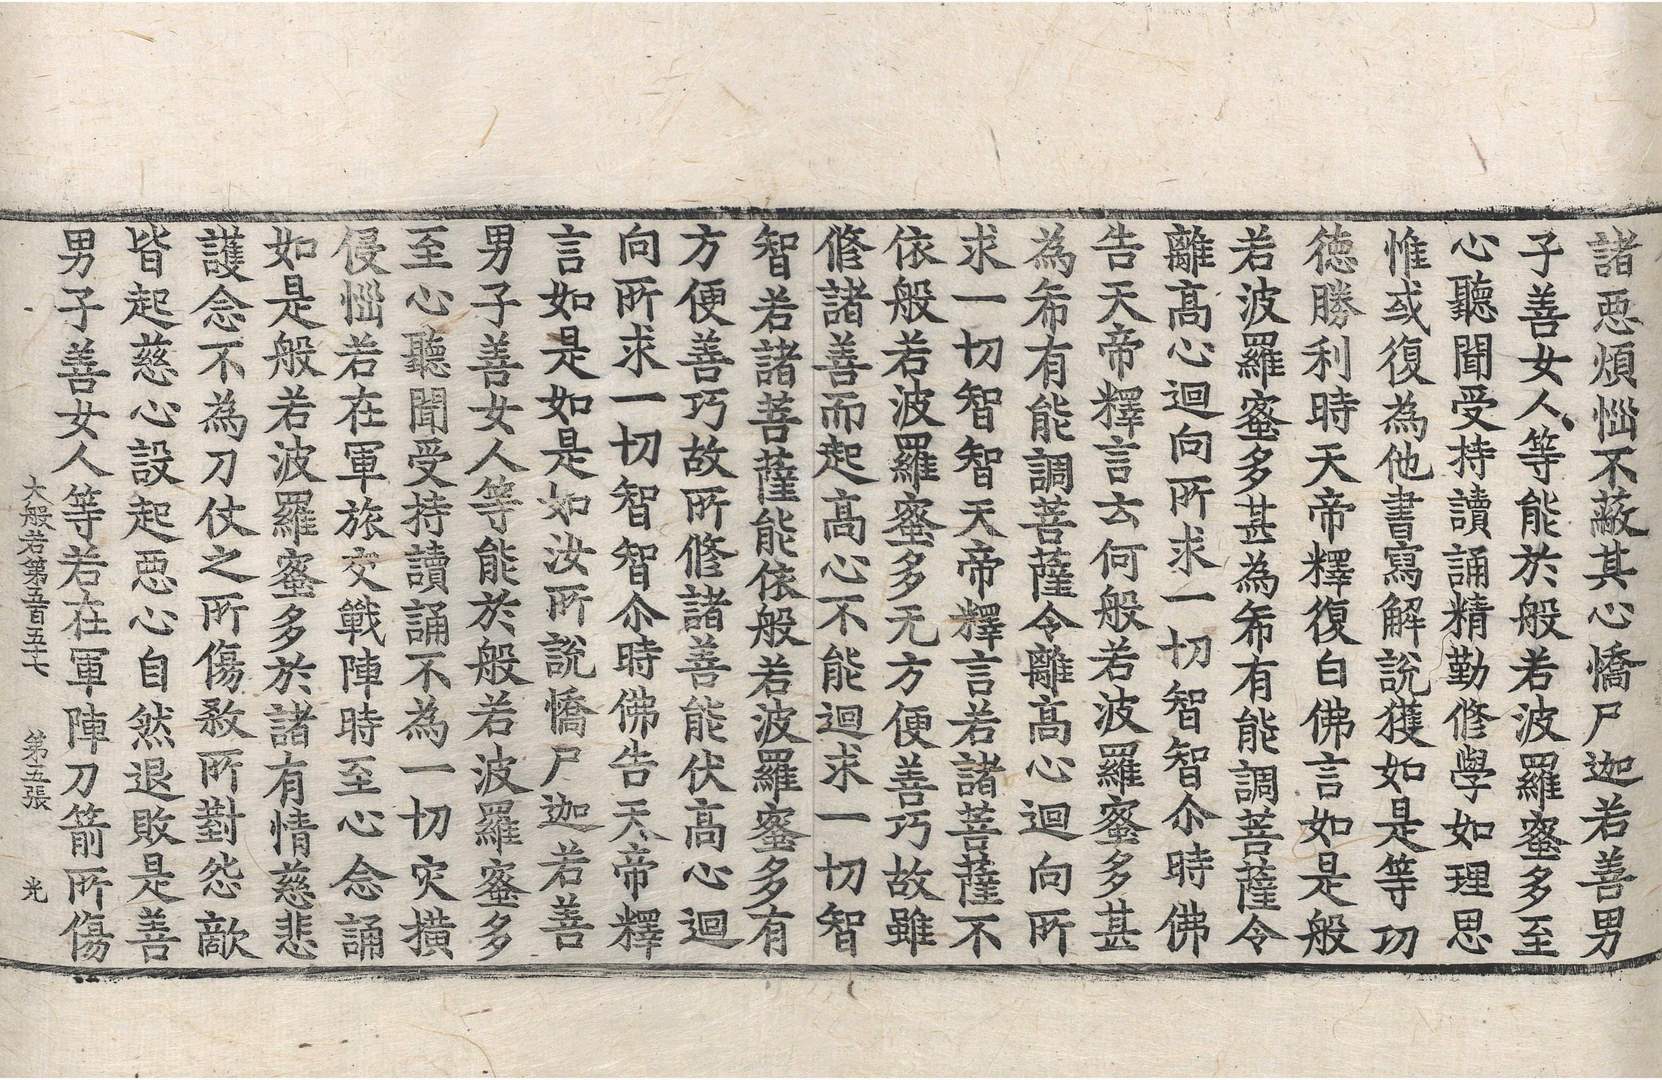 諸惡煩惱不蔽其心憍尸迦若善男
子善女人等能於般若波羅蜜多至
心聽聞受持讀誦精勤修學如理思
惟或復為他書寫解說獲如是等功
德勝利時天帝釋復白佛言如是般
若波羅蜜多甚為希有能調菩薩令
離高心迴向所求一切智智尒時佛
告天帝釋言云何般若波羅蜜多甚
為希有能調菩薩令離高心迴向所
求一切智智天帝釋言若諸菩薩不
依般若波羅蜜多无方便善巧故雖
修諸善而起高心不能迴求一切智
智若諸菩薩能依般若波羅蜜多有
方便善巧故所修諸善能伏高心迴
向所求一切智智尒時佛告天帝釋
言如是如是如汝所說憍尸迦若善
男子善女人等能於般若波羅蜜多
至心聽聞受持讀誦不為一切灾橫
侵惱若在軍旅交戰陣時至心念誦
如是般若波羅蜜多於諸有情慈悲
護念不為刀仗之所傷煞所對怨敵
皆起慈心設起惡心自然退敗是善
男子善女人等若在軍陣刀箭所傷
大般若第五百五十七 第五張 光